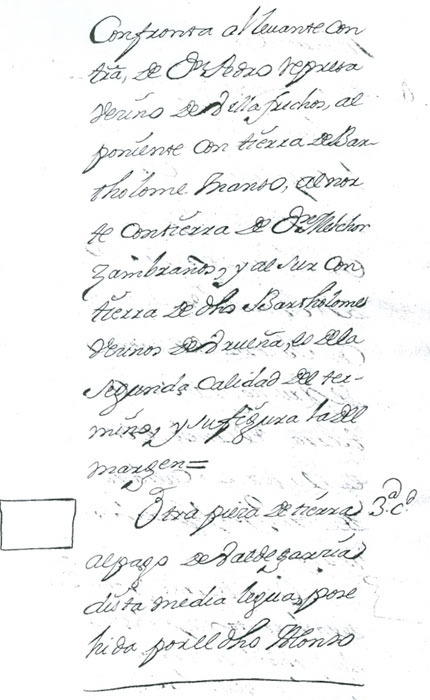 Confronta al levante con
trra, de Dn Pedro represa
vezino de Villafrechos, al
poniente con tierra de Bar-
tholome Manso, al nor
te con tierra de Dn Melchor
Zambranos, y al sur con
tierra de dho Bartholome
vezinos de Urueña, es de la
segunda Calidad del ter-
mino, y su figura la del
margen =
Otra pieza de tierra 3ª cd
al pago de Valdegarcia
dista media legua, pose
hida por el dho Alonso